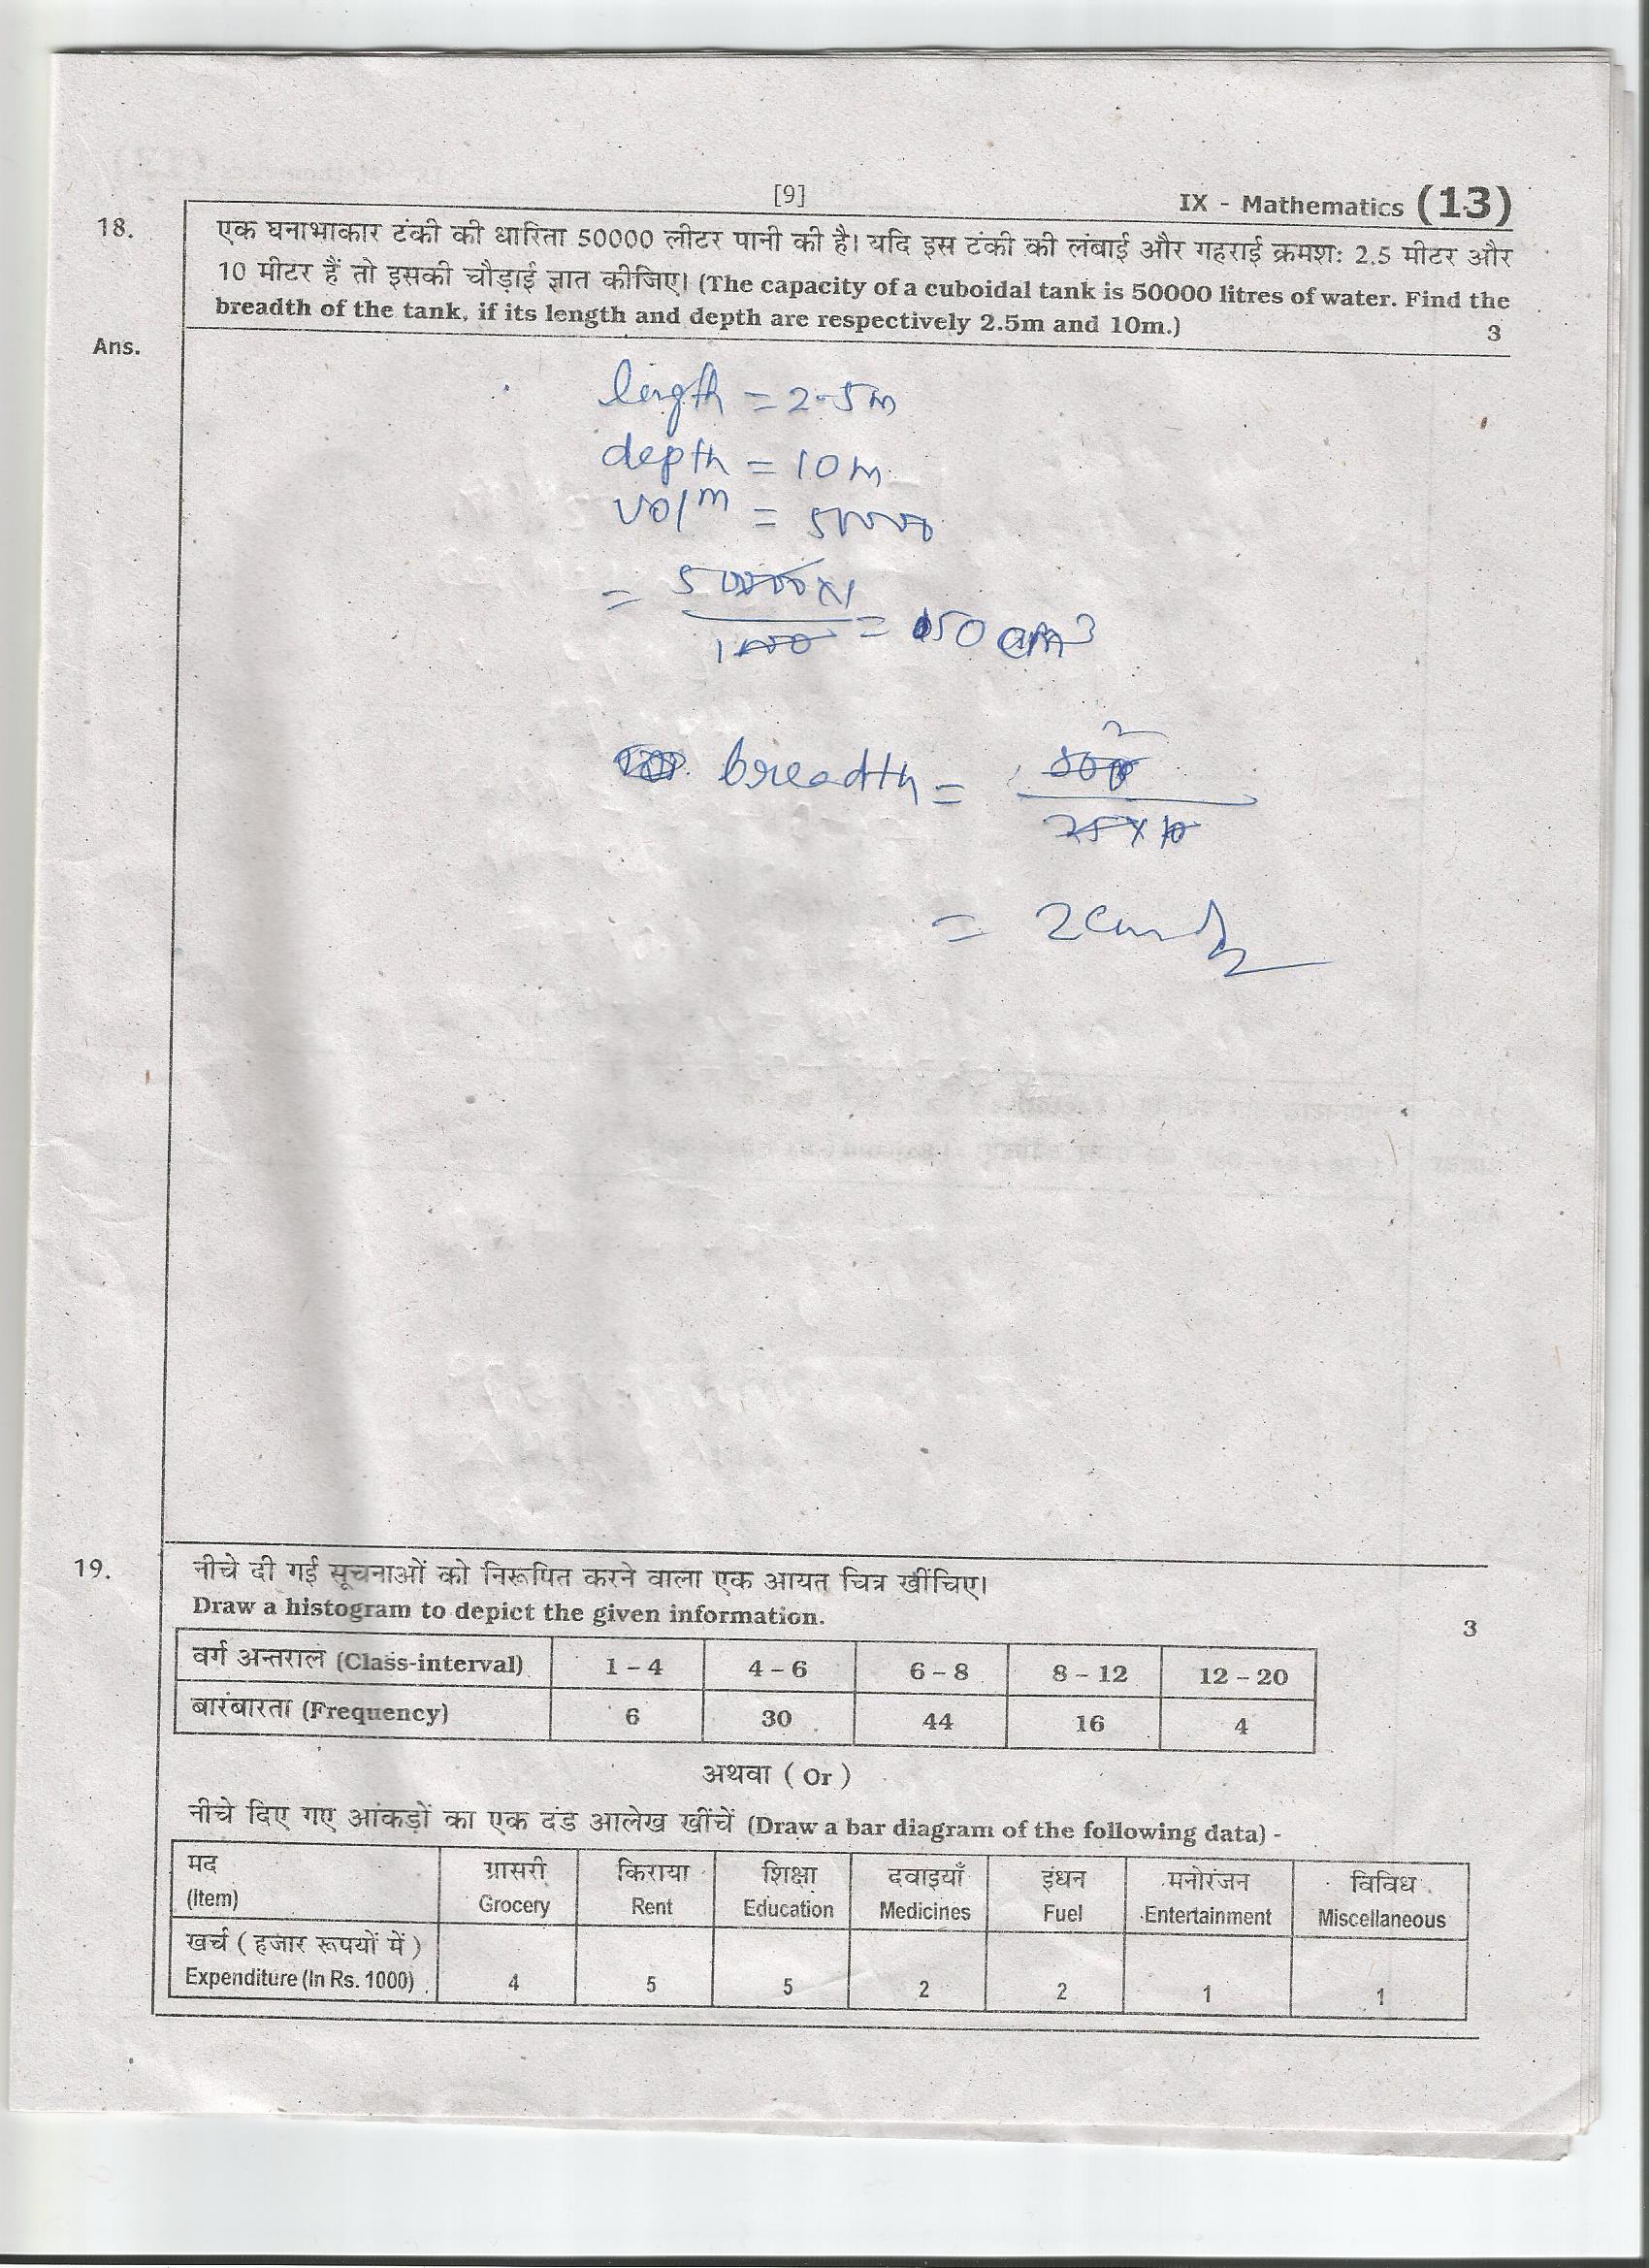 [9]
IX - Mathematics (13)
18. एक घनाभाकार टंकी की धारिता 50000 लीटर पानी की है। यदि इस टंकी की लंबाई और गहराई क्रमशः 2.5 मीटर और
10 मीटर हैं तो इसकी चौड़ाई ज्ञात कीजिए। (The capacity of a cuboidal tank is 50000 litres of water. Find the
breadth of the tank, if its length and depth are respectively 2.5m and 10m.) 3
Ans.
length = 2.5m
depth = 10m
vol^m = 50000
= 50000x1/1000 = 50 cm³
breadth = 500/25x10 2
= 2cm
19. नीचे दी गई सूचनाओं को निरूपित करने वाला एक आयत चित्र खींचिए।
Draw a histogram to depict the given information. 3
वर्ग अन्तराल (Class-interval) 1 – 4 4 – 6 6 – 8 8 – 12 12 – 20
बारंबारता (Frequency) 6 30 44 16 4
अथवा ( Or )
नीचे दिए गए आंकड़ों का एक दंड आलेख खींचें (Draw a bar diagram of the following data) -
मद ग्रासरी किराया शिक्षा दवाइयाँ इंधन मनोरंजन विविध
(Item) Grocery Rent Education Medicines Fuel Entertainment Miscellaneous
खर्च ( हजार रूपयों में )
Expenditure (In Rs. 1000) 4 5 5 2 2 1 1